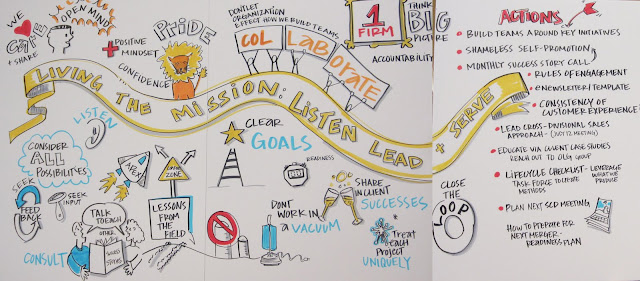 WE
GATE
+ SHARE
OPEN MIND
PRIDE
+ POSITIVE
MINDSET
CONFIDENCE
DON'T LET
ORGANIZATION
EFFECT HOW WE BUILD TEAMS
COL
LAB
ORATE
1
FIRM
THINK
BIG
PICTURE
ACCOUNTABILITY
LIVING THE MISSION: LISTEN LEAD
+ SERVE
LISTEN
CONSIDER
ALL
POSSIBILITIES
SEEK
FEED
BACK
SEEK
INPUT
APEX
ZONE
TALK
TO EACH
OTHER
CONSULT
LESSONS
FROM
THE FIELD
CLEAR
GOALS
READINESS
SHARE
IN CLIENT
SUCCESSES
DONT
WORK IN
a VACUUM
Treat
each
Project
UNIQUELY
CLOSE
THE
LOOP
ACTIONS
• BUILD TEAMS AROUND KEY INITIATIVES
• SHAMELESS SELF-PROMOTION
• MONTHLY SUCCESS STORY CALL
• RULES OF ENGAGEMENT
• eNEWSLETTER/TEMPLATE
• CONSISTENCY OF
CUSTOMER EXPERIENCE!
• LEAD CROSS-DIVISIONAL SALES
APPROACH -
• EDUCATE VIA CLIENT CASE STUDIES
REACH OUT TO GROUP
• LIFECYCLE CHECKLIST - LEVERAGE
TASK FORCE TO WHAT WE
METHODS PRODUCE
• PLAN NEXT SCD MEETING
HOW TO PREPARE FOR
NEXT MERGER -
READINESS PLAN